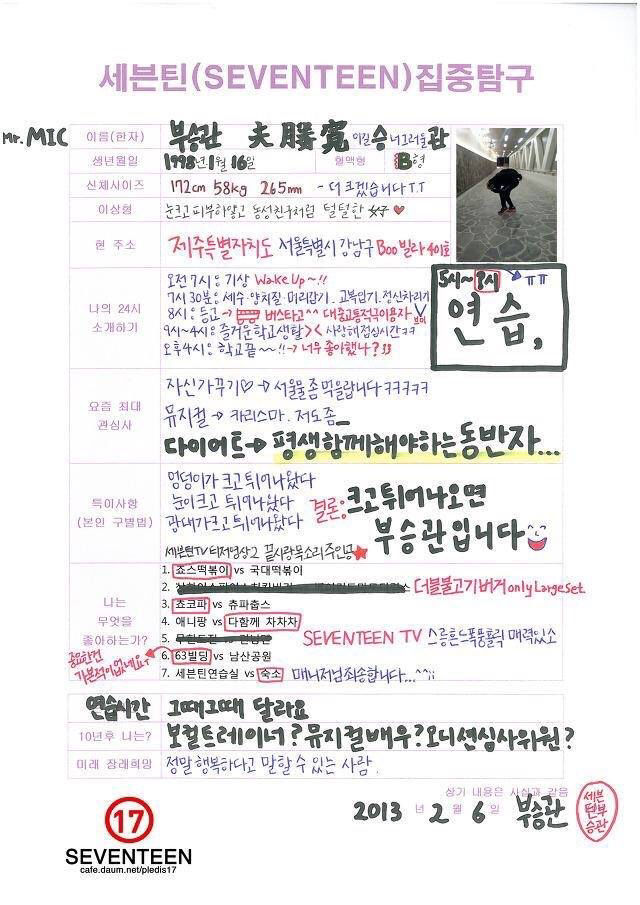 세븐틴(SEVENTEEN)집중탐구
Mr.MIC
이름(한자) 부승관 夫勝寬 이길 승 너그러울 관
생년월일 1998년 1월 16일 혈액형 B형
신체사이즈 172cm 58kg 265mm - 더 크겠습니다 T.T
이상형 눈크고 피부하얗고 동성친구처럼 털털한 女子 ♥
현 주소 제주특별자치도 서울특별시 강남구 Boo빌라 401호
나의 24시 소개하기
오전 7시 : 기상 Wake Up~!!
7시 30분 : 세수·양치질·머리감기·교복입기·정신차리기
8시 : 등교 → 버스타고^^ 대중교통적극이용자
9시~4시 : 즐거운학교생활 >< 사랑해점심시간ㅋㅋ
오후4시 : 학교끝~~!! → 너무좋아했나?
5시~ ㅠㅠ
연습,
요즘 최대 관심사
자신가꾸기♡ → 서울물좀먹을랍니다ㅋㅋㅋㅋㅋ
뮤지컬 → 카리스마. 저도좀
다이어트 → 평생함께해야하는동반자...
특이사항
(본인 구별법)
엉덩이가 크고 튀어나왔다
눈이크고 튀어나왔다
광대가크고튀어나왔다
결론: 크고튀어나오면
부승관입니다
세븐틴TV티저영상2 끝사랑목소리주인공★
나는 무엇을 좋아하는가?
1. 죠스떡볶이 vs 국대떡볶이
2. 더블불고기버거 only Large set
3. 쵸코파 vs 츄파춥스
4. 애니팡 vs 다함께 차차차
5. SEVENTEEN TV 매력있소
6. 63빌딩 vs 남산공원
7. 세븐틴연습실 vs 숙소 매니저님죄송합니다...^^;;
중요한건 가본적이없네요
연습시간 그때그때 달라요
10년후 나는? 보컬트레이너? 뮤지컬배우? 오디션심사위원?
미래 장래희망 정말 행복하다고 말할 수 있는 사람.
상기 내용은 사실과 같음
2013 년 2 월 6 일 부승관
세븐틴부승관
17
SEVENTEEN
cafe.daum.net/pledis17